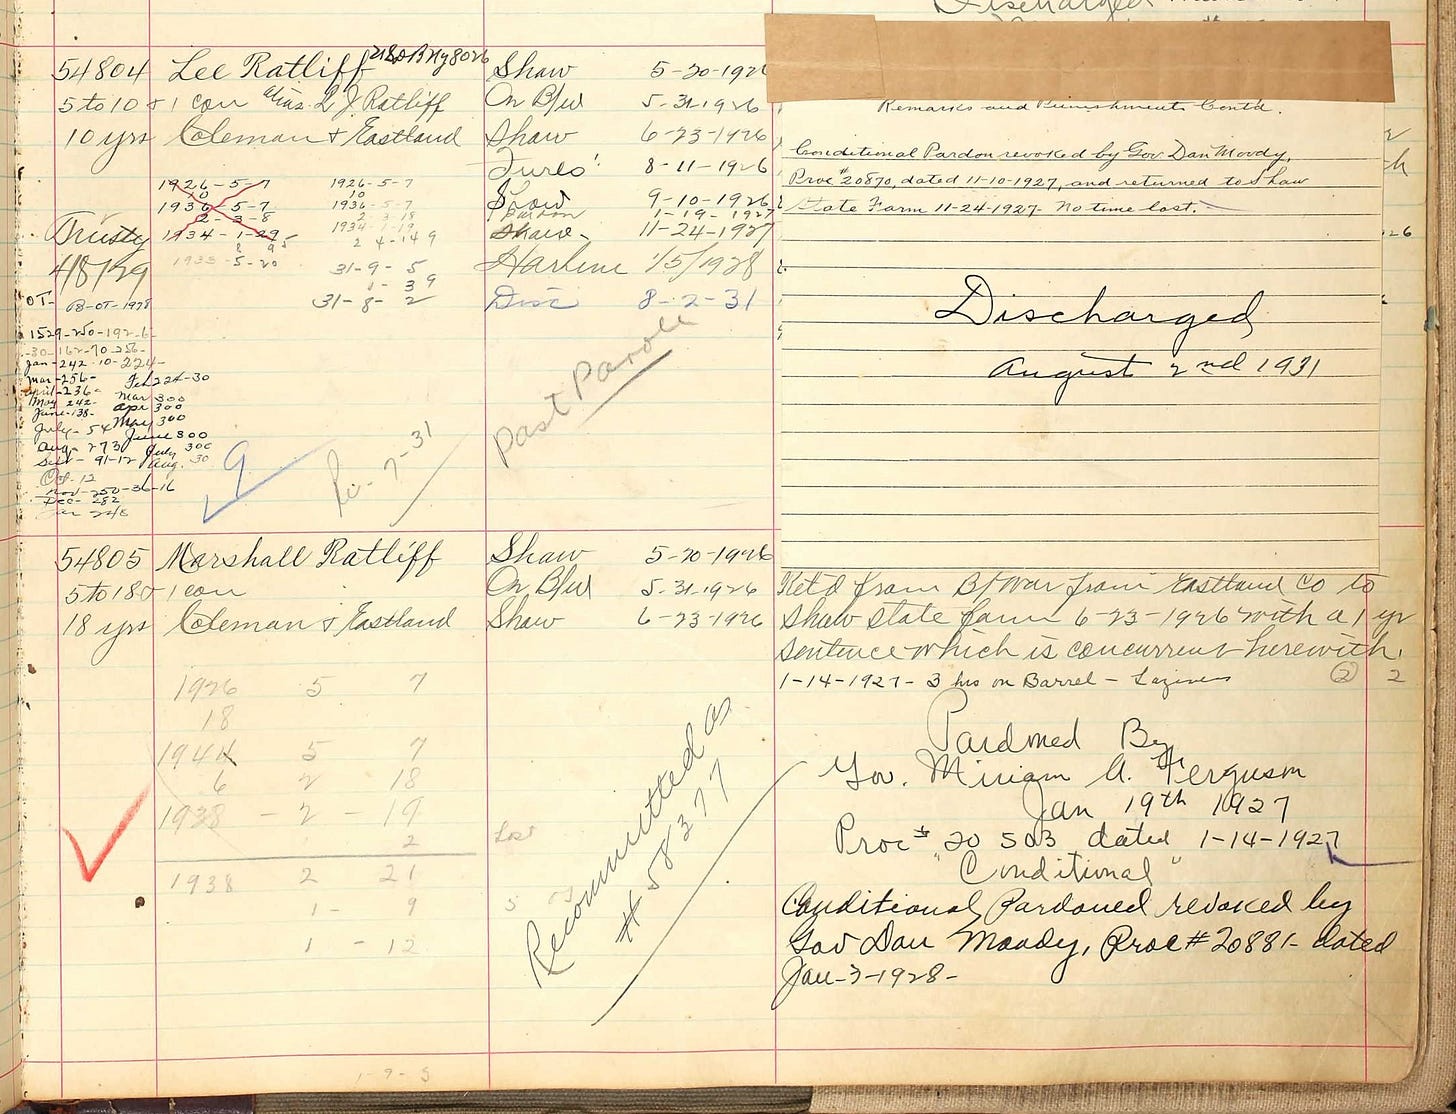 Discharged
54804 Lee Ratliff Shaw 5-20-1926
5 to 10 & 1 con alias L J Ratliff On B/W 5-31-1926
10 yrs Coleman & Eastland Shaw 6-23-1926
Furlo' 8-11-1926
Shaw 9-10-1926
Pardon 1-19-1927
Shaw 11-24-1927
Harlem 1/5/1928
Disc 8-2-31
1926-5-7
10
1936-5-7
2-3-8
1934-1-29
1933-5-20
1926-5-7
10
1936-5-7
2-3-18
1934-1-19
2 4-14 9
31-9-5
1-3 9
31-8-2
Trusty
4/8/29
OT-
Jan-242
Mar-256-
April-236-
May 242-
June-138-
July-54
Aug-273
Sept-91-12
Oct-12
Dec-282
Feb 224-30
Mar 300
Apr 300
May 300
June 300
July 300
Aug. 30
9
7-31
Past Parole
Remarks and Punishments Contd.
Conditional Pardon revoked by Gov Dan Moody,
Proc #20870, dated 11-10-1927, and returned to Shaw
State Farm 11-24-1927- No time lost.
Discharged
August 2nd 1931
54805 Marshall Ratliff Shaw 5-20-1926
5 to 18 & 1 con On B/W 5-31-1926
18 yrs Coleman & Eastland Shaw 6-23-1926
1926 5 7
18
1944 5 7
6 2 18
1938 - 2 - 19
2
1938 2 21
1 - 9
1 - 12
Lost
Recommitted as
# 58377
Ret'd from B/War from Eastland Co to
Shaw State farm 6-23-1926 with a 1 yr
sentence which is concurrent herewith.
1-14-1927- 3 hrs on Barrel - Laziness (2) 2
Pardoned By
Gov. Miriam A. Ferguson
Jan 19th 1927
Proc # 20 503 dated 1-14-1927
"Conditional"
Conditional Pardoned revoked by
Gov Dan Moody, Proc # 20881- dated
Jan-3-1928-
1-9-5